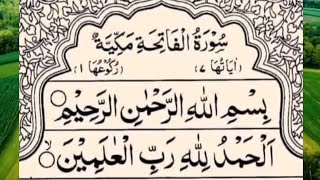 سُوْرَةُ الْفَاتِحَةِ مَكِّيَّةٌ
اٰيَاتُهَا ٧ رُكُوْعُهَا ١
بِسْمِ اللّٰهِ الرَّحْمٰنِ الرَّحِيْمِ
اَلْحَمْدُ لِلّٰهِ رَبِّ الْعٰلَمِيْنَ